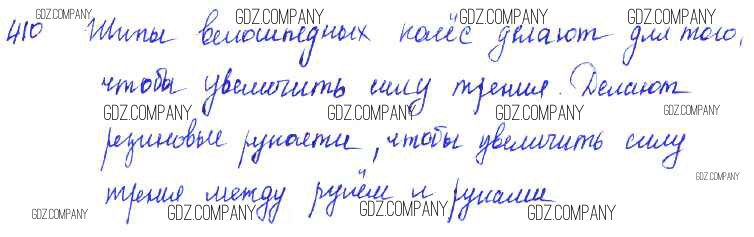 410 Шипы велосипедных колёс делают для того,
чтобы увеличить силу трения. Делают
резиновые рукоятки, чтобы увеличить силу
трения между рулём и руками
GDZ.COMPANY GDZ.COMPANY GDZ.COMPANY GDZ.COMPANY
GDZ.COMPANY GDZ.COMPANY GDZ.COMPANY GDZ.COMPANY
GDZ.COMPANY
GDZ.COMPANY GDZ.COMPANY GDZ.COMPANY GDZ.COMPANY